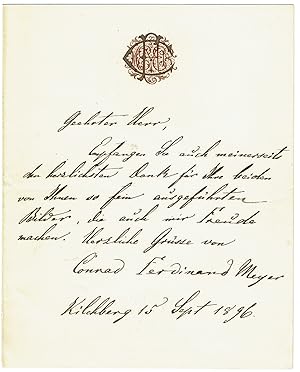 Geehrter Herr,
Empfangen Sie auch meinerseits
den herzlichsten Dank für Ihre beiden
von Ihnen so fein ausgeführten
Bilder, die auch mir Freude
machen. Herzliche Grüsse von
Conrad Ferdinand Meyer
Kilchberg 15 Sept 1896.